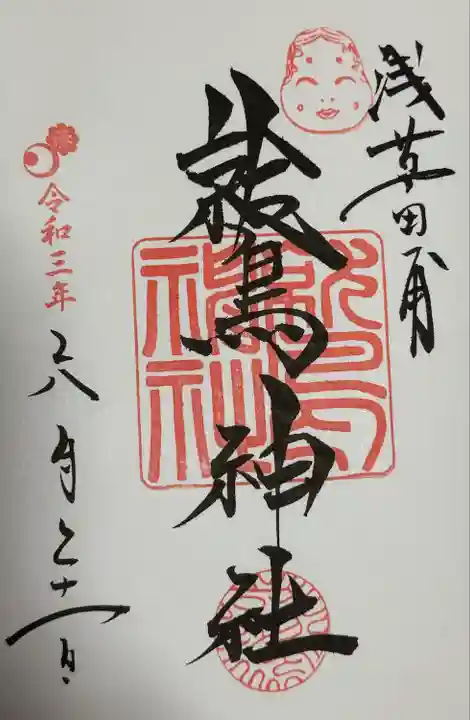 浅草田甫
鷲神社
令和三年
六月二十一日